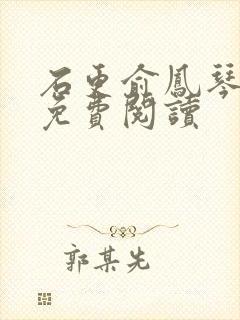 石更俞鳳琴
免費閱讀
郭某先